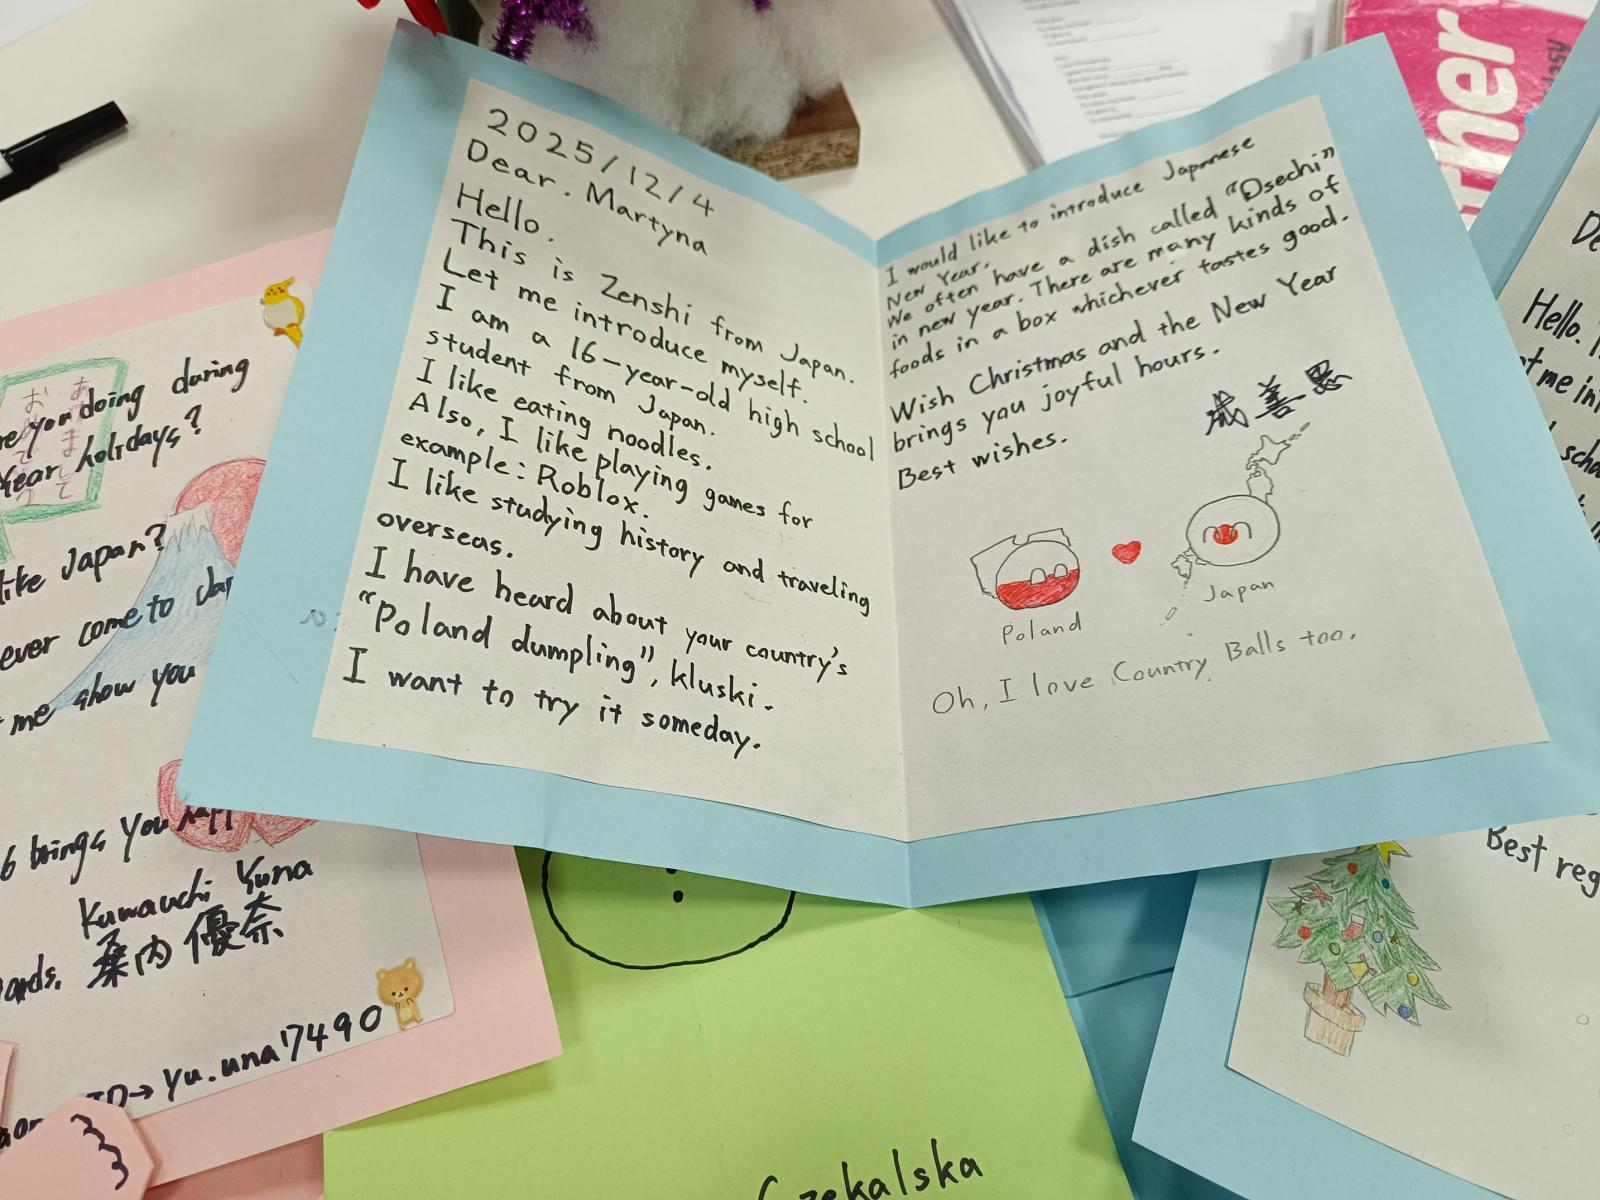 2025/12/4
Dear. Martyna
Hello.
This is Zenshi from Japan.
Let me introduce myself.
I am a 16-year-old high school
student from Japan.
I like eating noodles.
Also, I like playing games for
example: Roblox.
I like studying history and traveling
overseas.
I have heard about your country's
"Poland dumpling", kluski.
I want to try it someday.
I would like to introduce Japanese
New Year.
We often have a dish called "Osechi"
in new year. There are many kinds of
foods in a box whichever tastes good.
Wish Christmas and the New Year
brings you joyful hours.
Best wishes.
善
Poland
Japan
Oh, I love Country Balls too.
you doing during
Year holidays?
like Japan?
ever come to
me show you
brings you
Kuwauchi Yuna
桑内優奈
ID→ yu.una7490
Czekalska
her
easy
Hello.
me
Best reg